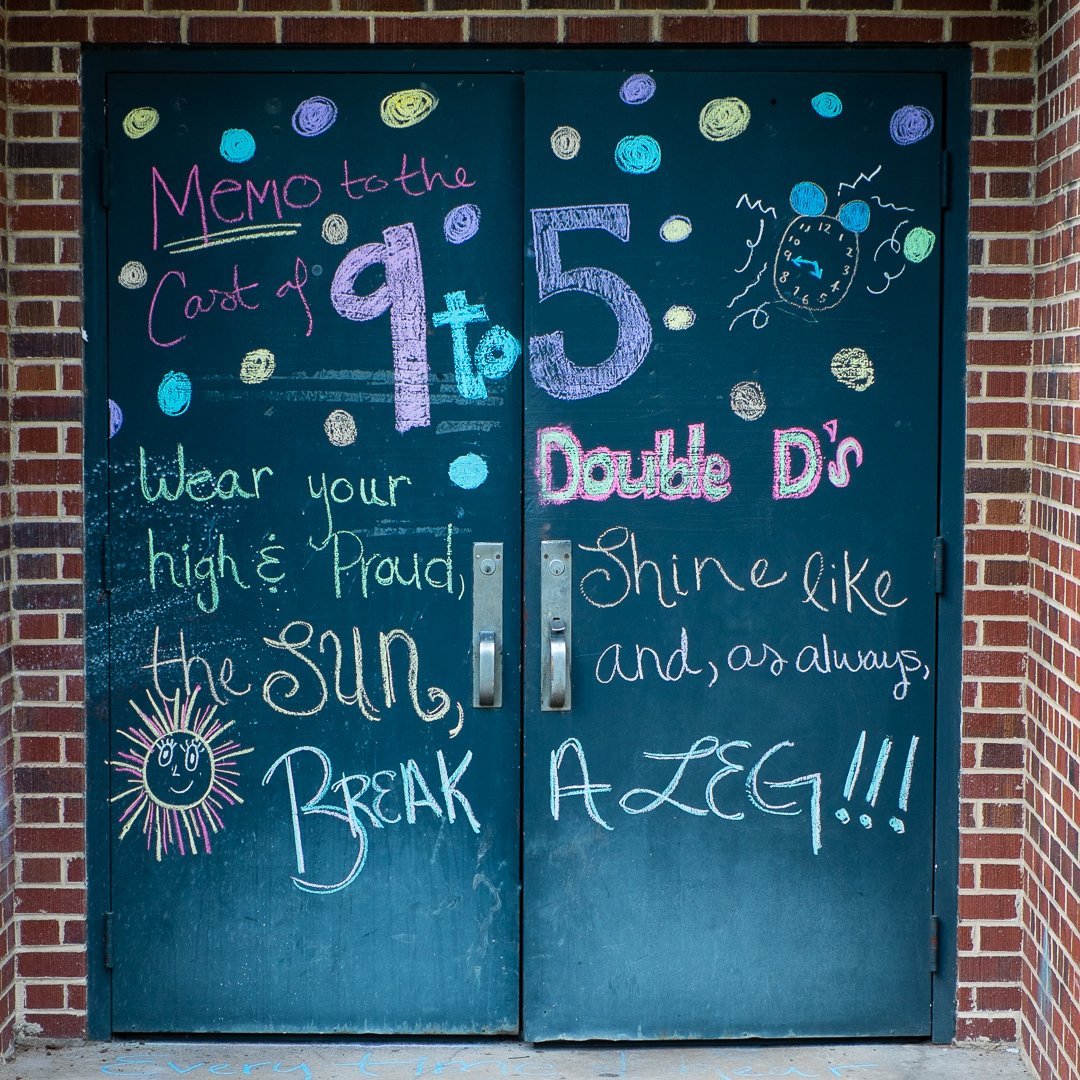 MEMO to the
Cast of 9 to 5
12
11 1
10 2
9 3
8 4
7 6 5
Wear your Double D's
high & Proud, Shine like
the SUN, and, as always,
BREAK A LEG!!!
Every time I